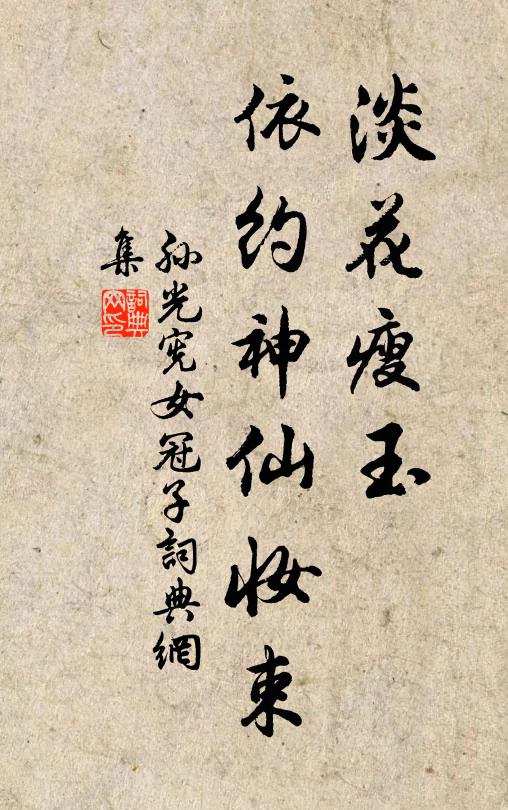 淡花瘦玉
依约神仙妆束
孙光宪女冠子詞典網
集
詞典网印